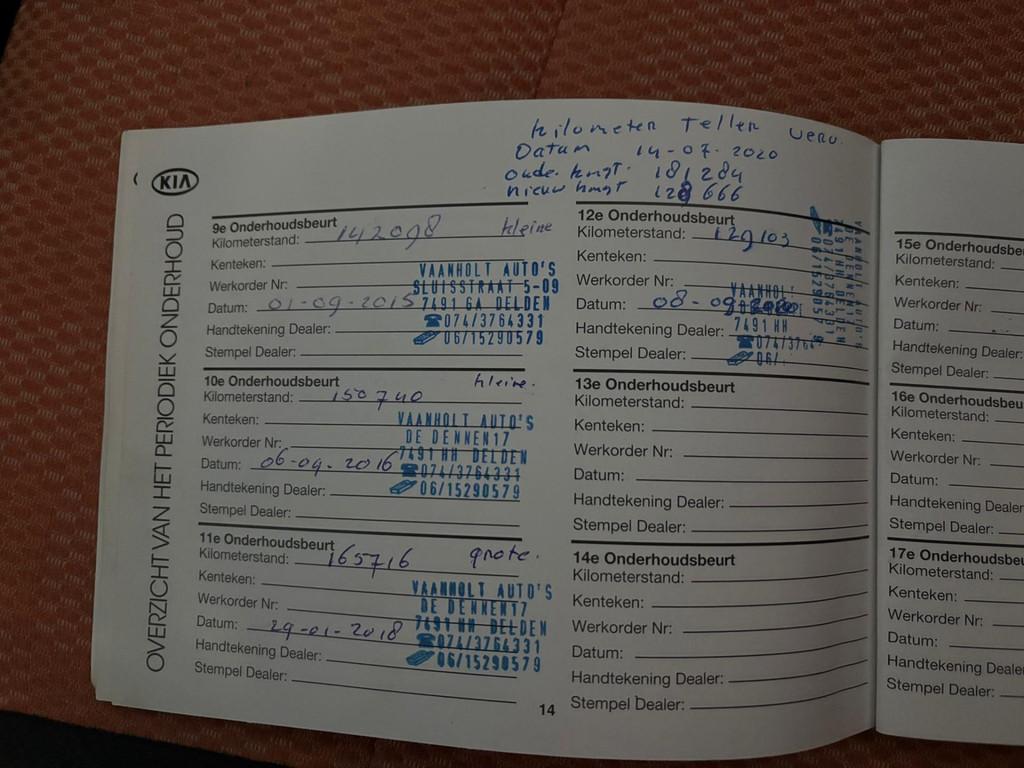 kilometer Teller verv.
Datum 14-07-2020
oude kmst. 181284
nieuw kmst 128666
KIA
OVERZICHT VAN HET PERIODIEK ONDERHOUD
9e Onderhoudsbeurt
Kilometerstand: 142098 kleine
Kenteken:
VAANHOLT AUTO'S
Werkorder Nr: SLUISSTRAAT 5-09
Datum: 01-09-2015 7491 GA DELDEN
Handtekening Dealer: 074/3764331
06/15290579
Stempel Dealer:
10e Onderhoudsbeurt kleine.
Kilometerstand: 150740
Kenteken: VAANHOLT AUTO'S
DE DENNEN 17
Werkorder Nr: 7491 HH DELDEN
Datum: 06-09-2016 074/3764331
Handtekening Dealer: 06/15290579
Stempel Dealer:
11e Onderhoudsbeurt
Kilometerstand: 165716 grote.
Kenteken: VAANHOLT AUTO'S
Werkorder Nr: DE DENNEN 17
Datum: 29-01-2018 7491 HH DELDEN
074/3764331
Handtekening Dealer: 06/15290579
Stempel Dealer:
14
12e Onderhoudsbeurt
Kilometerstand: 129103
Kenteken:
Werkorder Nr:
Datum: 08-09-2020
Handtekening Dealer: 7491 HH
Stempel Dealer: 06/
VAANHOLT AUTO'S
DE DENNEN 17
7491 HH DELDEN
074/3764331
06/15290579
13e Onderhoudsbeurt
Kilometerstand:
Kenteken:
Werkorder Nr:
Datum:
Handtekening Dealer:
Stempel Dealer:
14e Onderhoudsbeurt
Kilometerstand:
Kenteken:
Werkorder Nr:
Datum:
Handtekening Dealer:
Stempel Dealer:
15e Onderhoudsbe
Kilometerstand:
Kenteken:
Werkorder Nr:
Datum:
Handtekening Dealer:
Stempel Dealer:
16e Onderhoudsbeu
Kilometerstand:
Kenteken:
Werkorder Nr:
Datum:
Handtekening Dealer
Stempel Dealer:
17e Onderhoudsbeu
Kilometerstand:
Kenteken:
Werkorder Nr:
Datum:
Handtekening Dealer
Stempel Dealer: